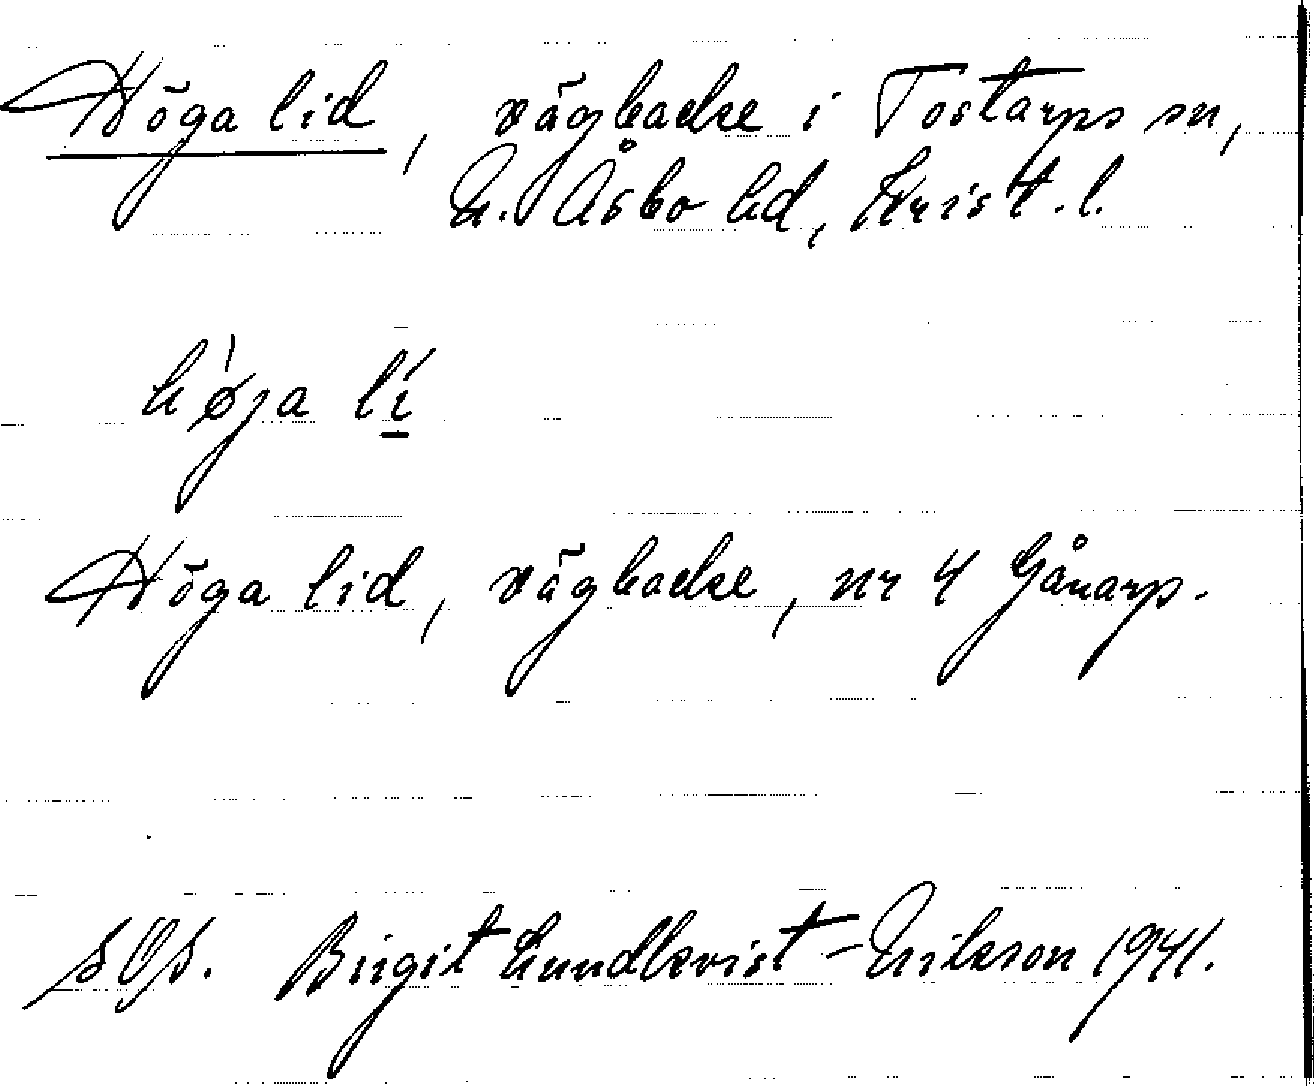 Höga lid, vägbacke i Tostarps sn,
N. Åsbo hd, Krist. l.
hø̀ja lí
Höga lid, vägbacke, nr 4 Gånarp.
SOS. Birgit Lundkvist-Erikson 1941.